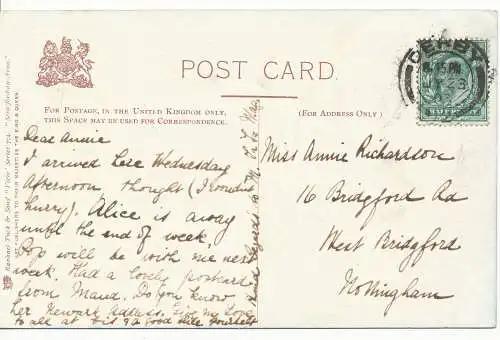 POST CARD.
FOR POSTAGE, IN THE UNITED KINGDOM ONLY,
THIS SPACE MAY BE USED FOR CORRESPONDENCE.
(FOR ADDRESS ONLY)
DERBY
Dear Annie
I arrived here Wednesday
Afternoon, thought (I wouldn't
hurry). Alice is away
until the end of week.
Pop will be with me next
week. Had a lovely postcard
from Maud. Do you know
her Newark Address. Give my Love
to all at
Kind Regards to Mr
Miss Annie Richardson
16 Bridgford Rd
West Bridgford
Nottingham
Raphael Tuck & Sons' "View" Series 774
ART PUBLISHERS TO THEIR MAJESTIES THE KING & QUEEN